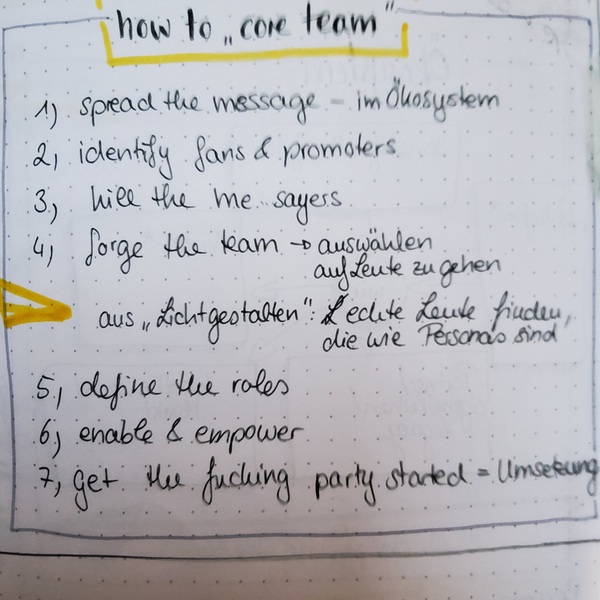 how to „core team"
1) spread the message – im Ökosystem
2) identify fans & promoters
3) kill the me sayers
4) forge the team → auswählen
auf Leute zu gehen
aus „Lichtgestalten": echte Leute finden,
die wie Personas sind
5) define the roles
6) enable & empower
7) get the fucking party started = Umsetzung